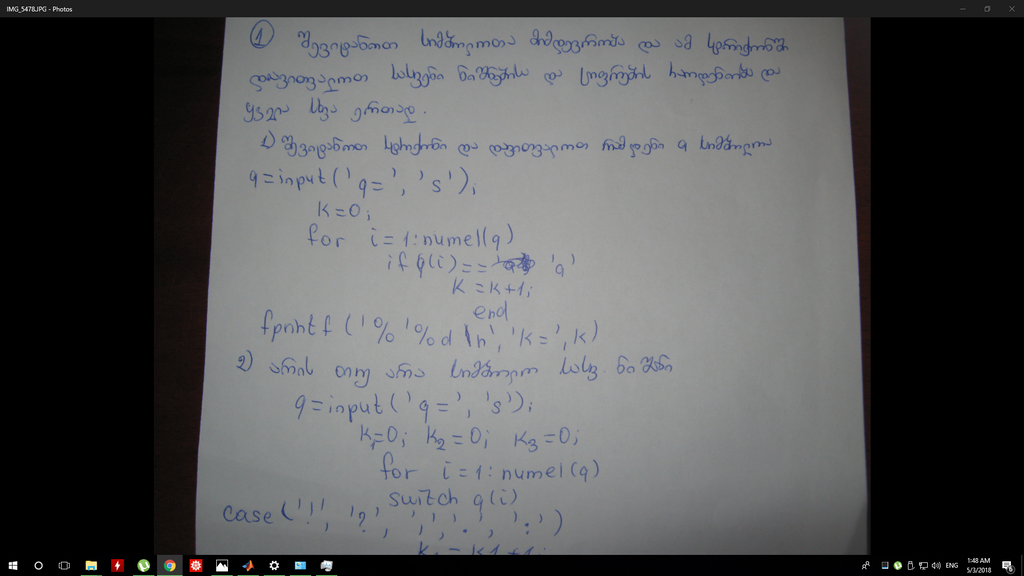 IMG_5478.JPG - Photos
1 შევიტანოთ სიმბოლოთა მიმდევრობა და ამ სტრიქონში
დავითვალოთ სასვენი ნიშნების და ციფრების რაოდენობა და
ყველა სხვა ერთად.
1) შევიტანოთ სტრიქონი და დავითვალოთ რამდენი a სიმბოლოა
q=input('q=', 's');
K=0;
for i=1:numel(q)
if q(i)== 'a'
K=K+1;
end
fprintf('% '%d \n', 'K=', k)
2) არის თუ არა სიმბოლო სასვ. ნიშანი
q=input('q=', 's');
K1=0; K2=0; K3=0;
for i=1:numel(q)
switch q(i)
case ('!', '?', ',', '.', ':')
K1=K1+1;
ENG
1:48 AM
5/3/2018